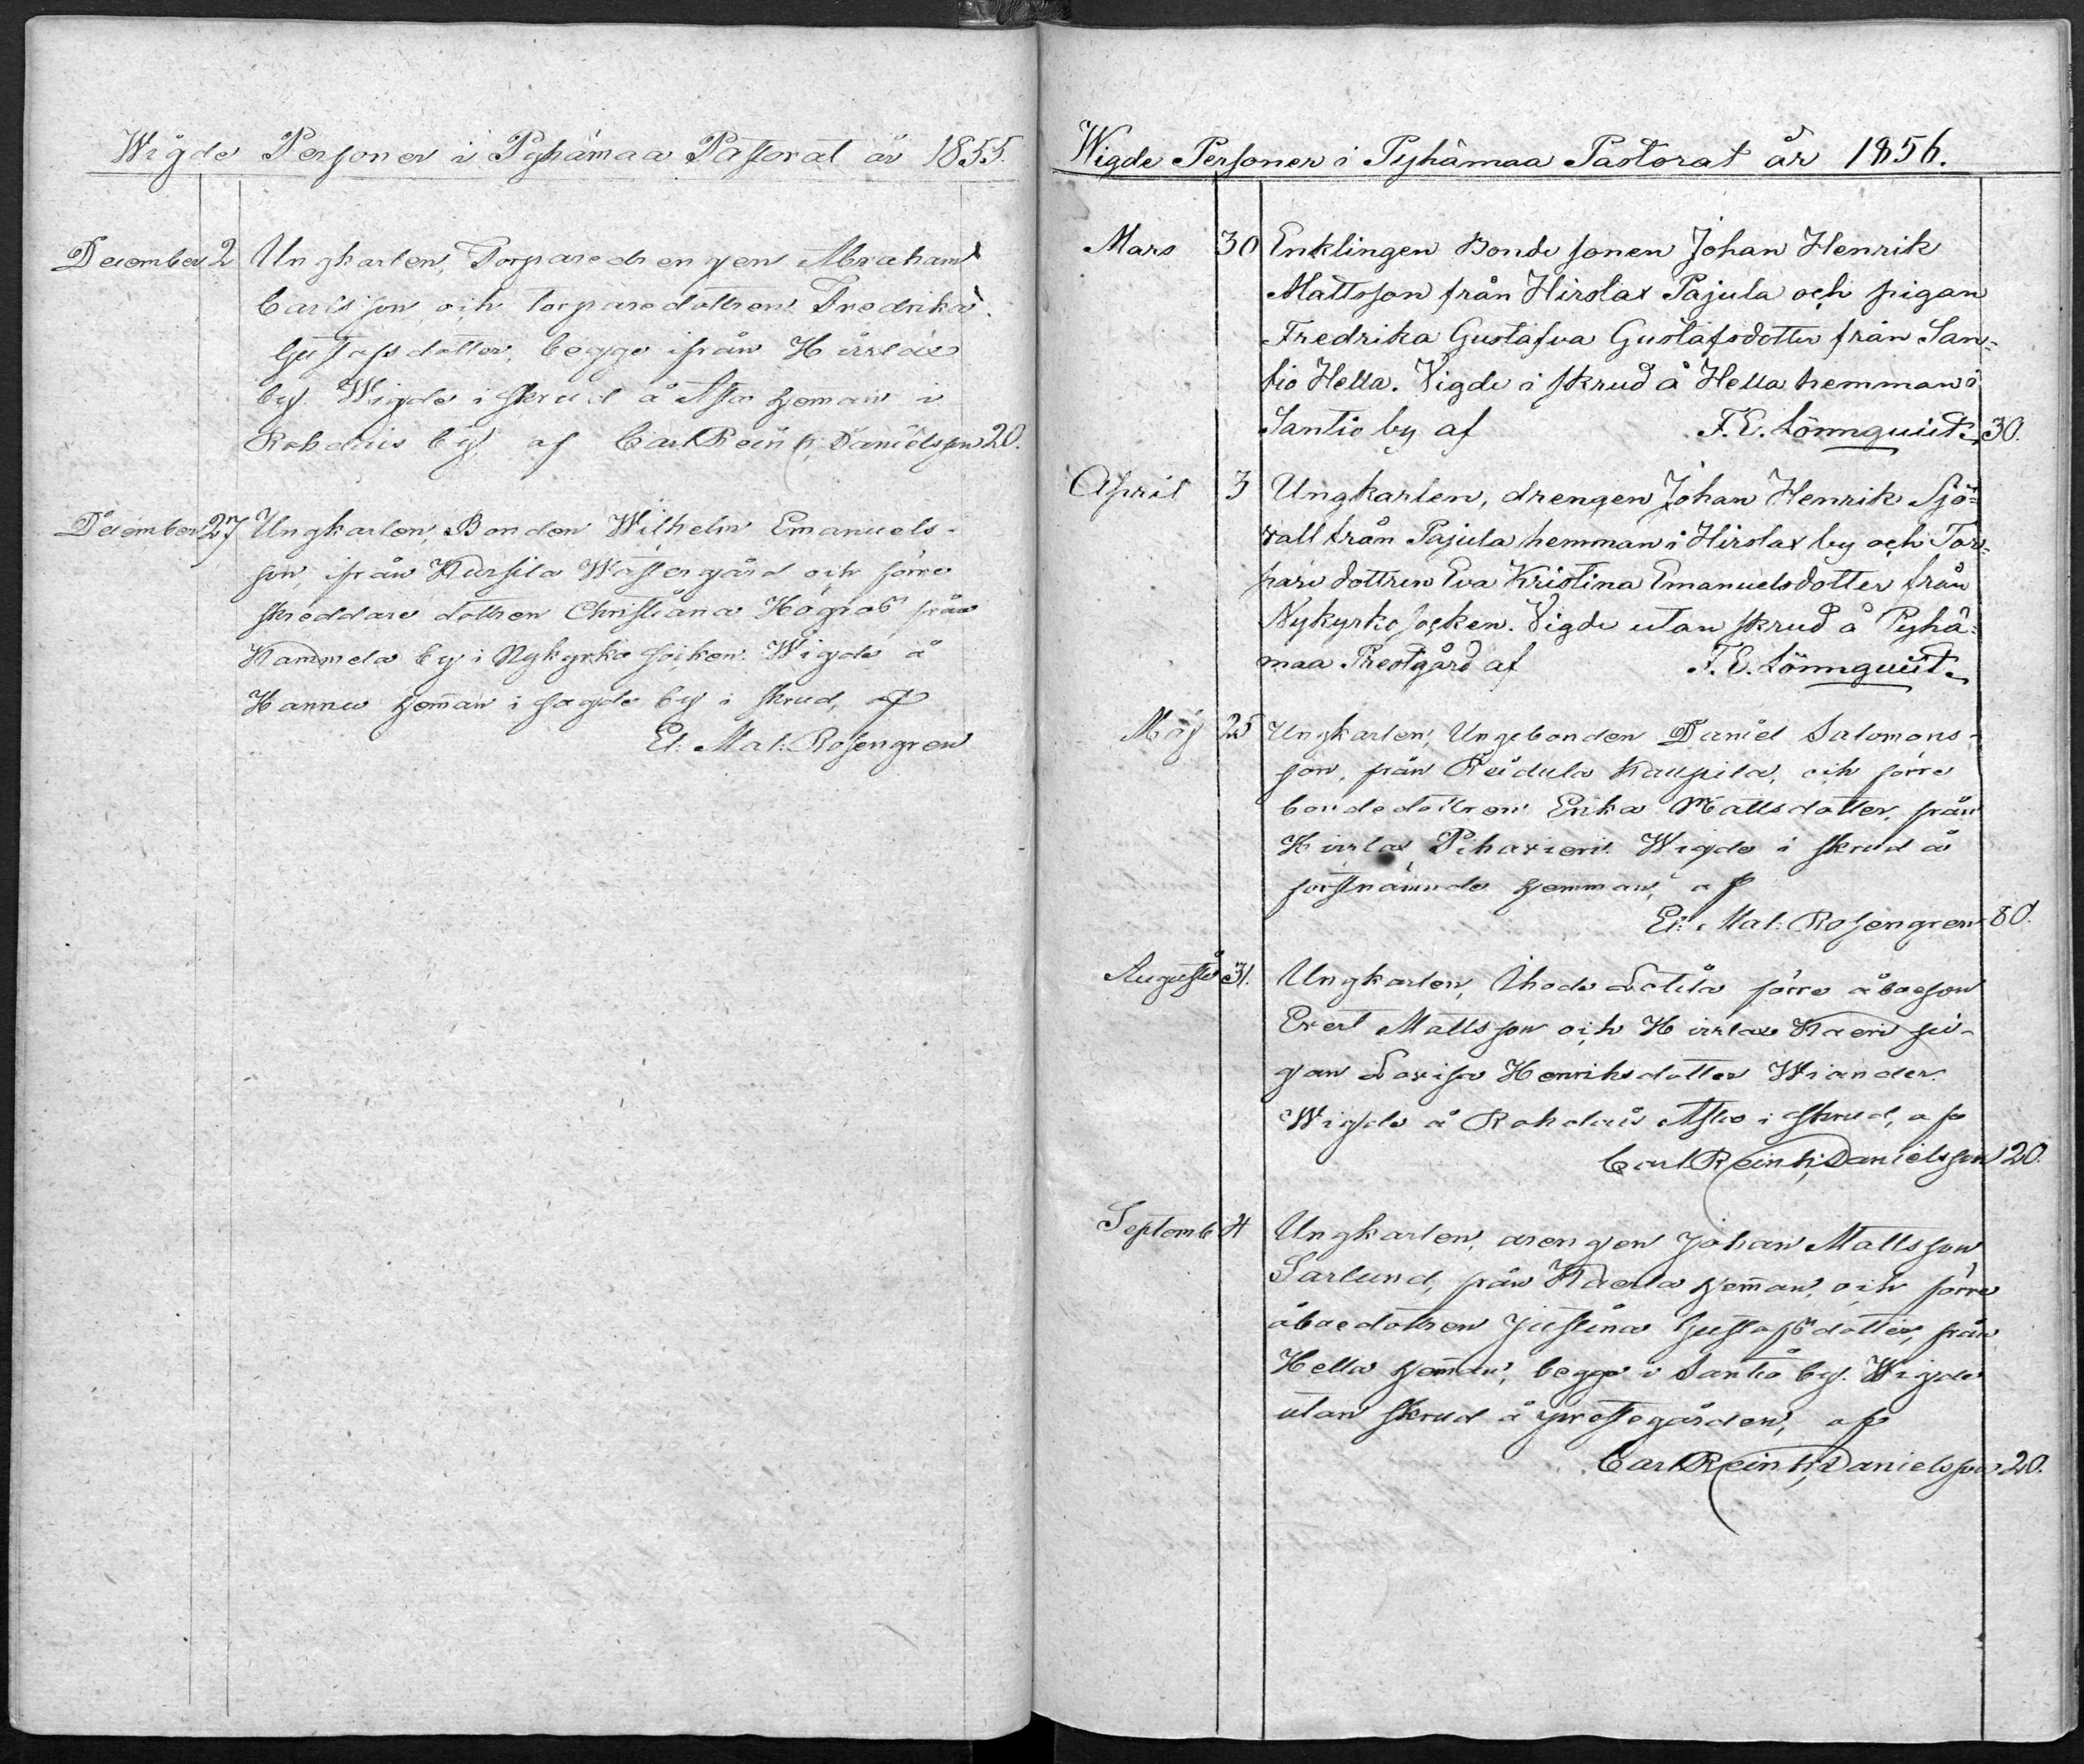 Wigde Personer i Pyhämaa Pastorat år 1855.
December 2 Ungkarlen, Torparedrengen Abraham
Carlsson och torparedottren Fredrika
Gustafsdotter, begge ifrån Hirslax
by. Wigde i skrud å Asta heman i
Rohdais by af Carl Reinh. Danielsson 20.
December 27 Ungkarlen, Bonden Wilhelm Emanuels-
son, ifrån Kursila Westergård och förre
skreddare dottren Christiana Högros från
Kammela by i Nykyrko socken. Wigde å
Hannu heman i sagde by i skrud, af
El. Mat: Rosengren
Wigde Personer i Pyhämaa Pastorat år 1856.
Mars 30 Enklingen Bonde sonen Johan Henrik
Mattsson från Hirslax Pajula och pigan
Fredrika Gustafva Gustafsdotter från San-
tio Hella. Vigde i skrud å Hella hemman i
Santio by af F. E. Lönnquist. 30.
April 3 Ungkarlen, drengen Johan Henrik Sjö-
vall från Pajula hemman i Hirslax by och Tor-
pare dottren Eva Kristina Emanuelsdotter från
Nykyrko socken. Vigde utan skrud å Pyhä-
maa Prestgård af F. E. Lönnquist.
Maj 25 Ungkarlen, Ungebonden Daniel Salomons-
son, från Reidula Kaupila, och förre
bondedottren Erika Mattsdotter, från
Hirslax, Pihavieri. Wigde i skrud å
förstnämnde hemman, af
El. Mat: Rosengren 80.
Augusti 31. Ungkarlen, Ihode Lotila förre åboeson
Evert Mattsson och Hirslax Kaeri pi-
gan Lovisa Henriksdotter Wiander.
Wigde å Rohdais Asta i skrud, af
Carl Reinh. Danielsson 20.
Septemb 4 Ungkarlen, drengen Johan Mattsson
Sarlund, från Kaerla heman, och förre
åboedottren Justina Gustafsdotter, från
Hella heman, begge i Santio by. Wigde
utan skrud å prestegården, af
Carl Reinh. Danielsson 20.